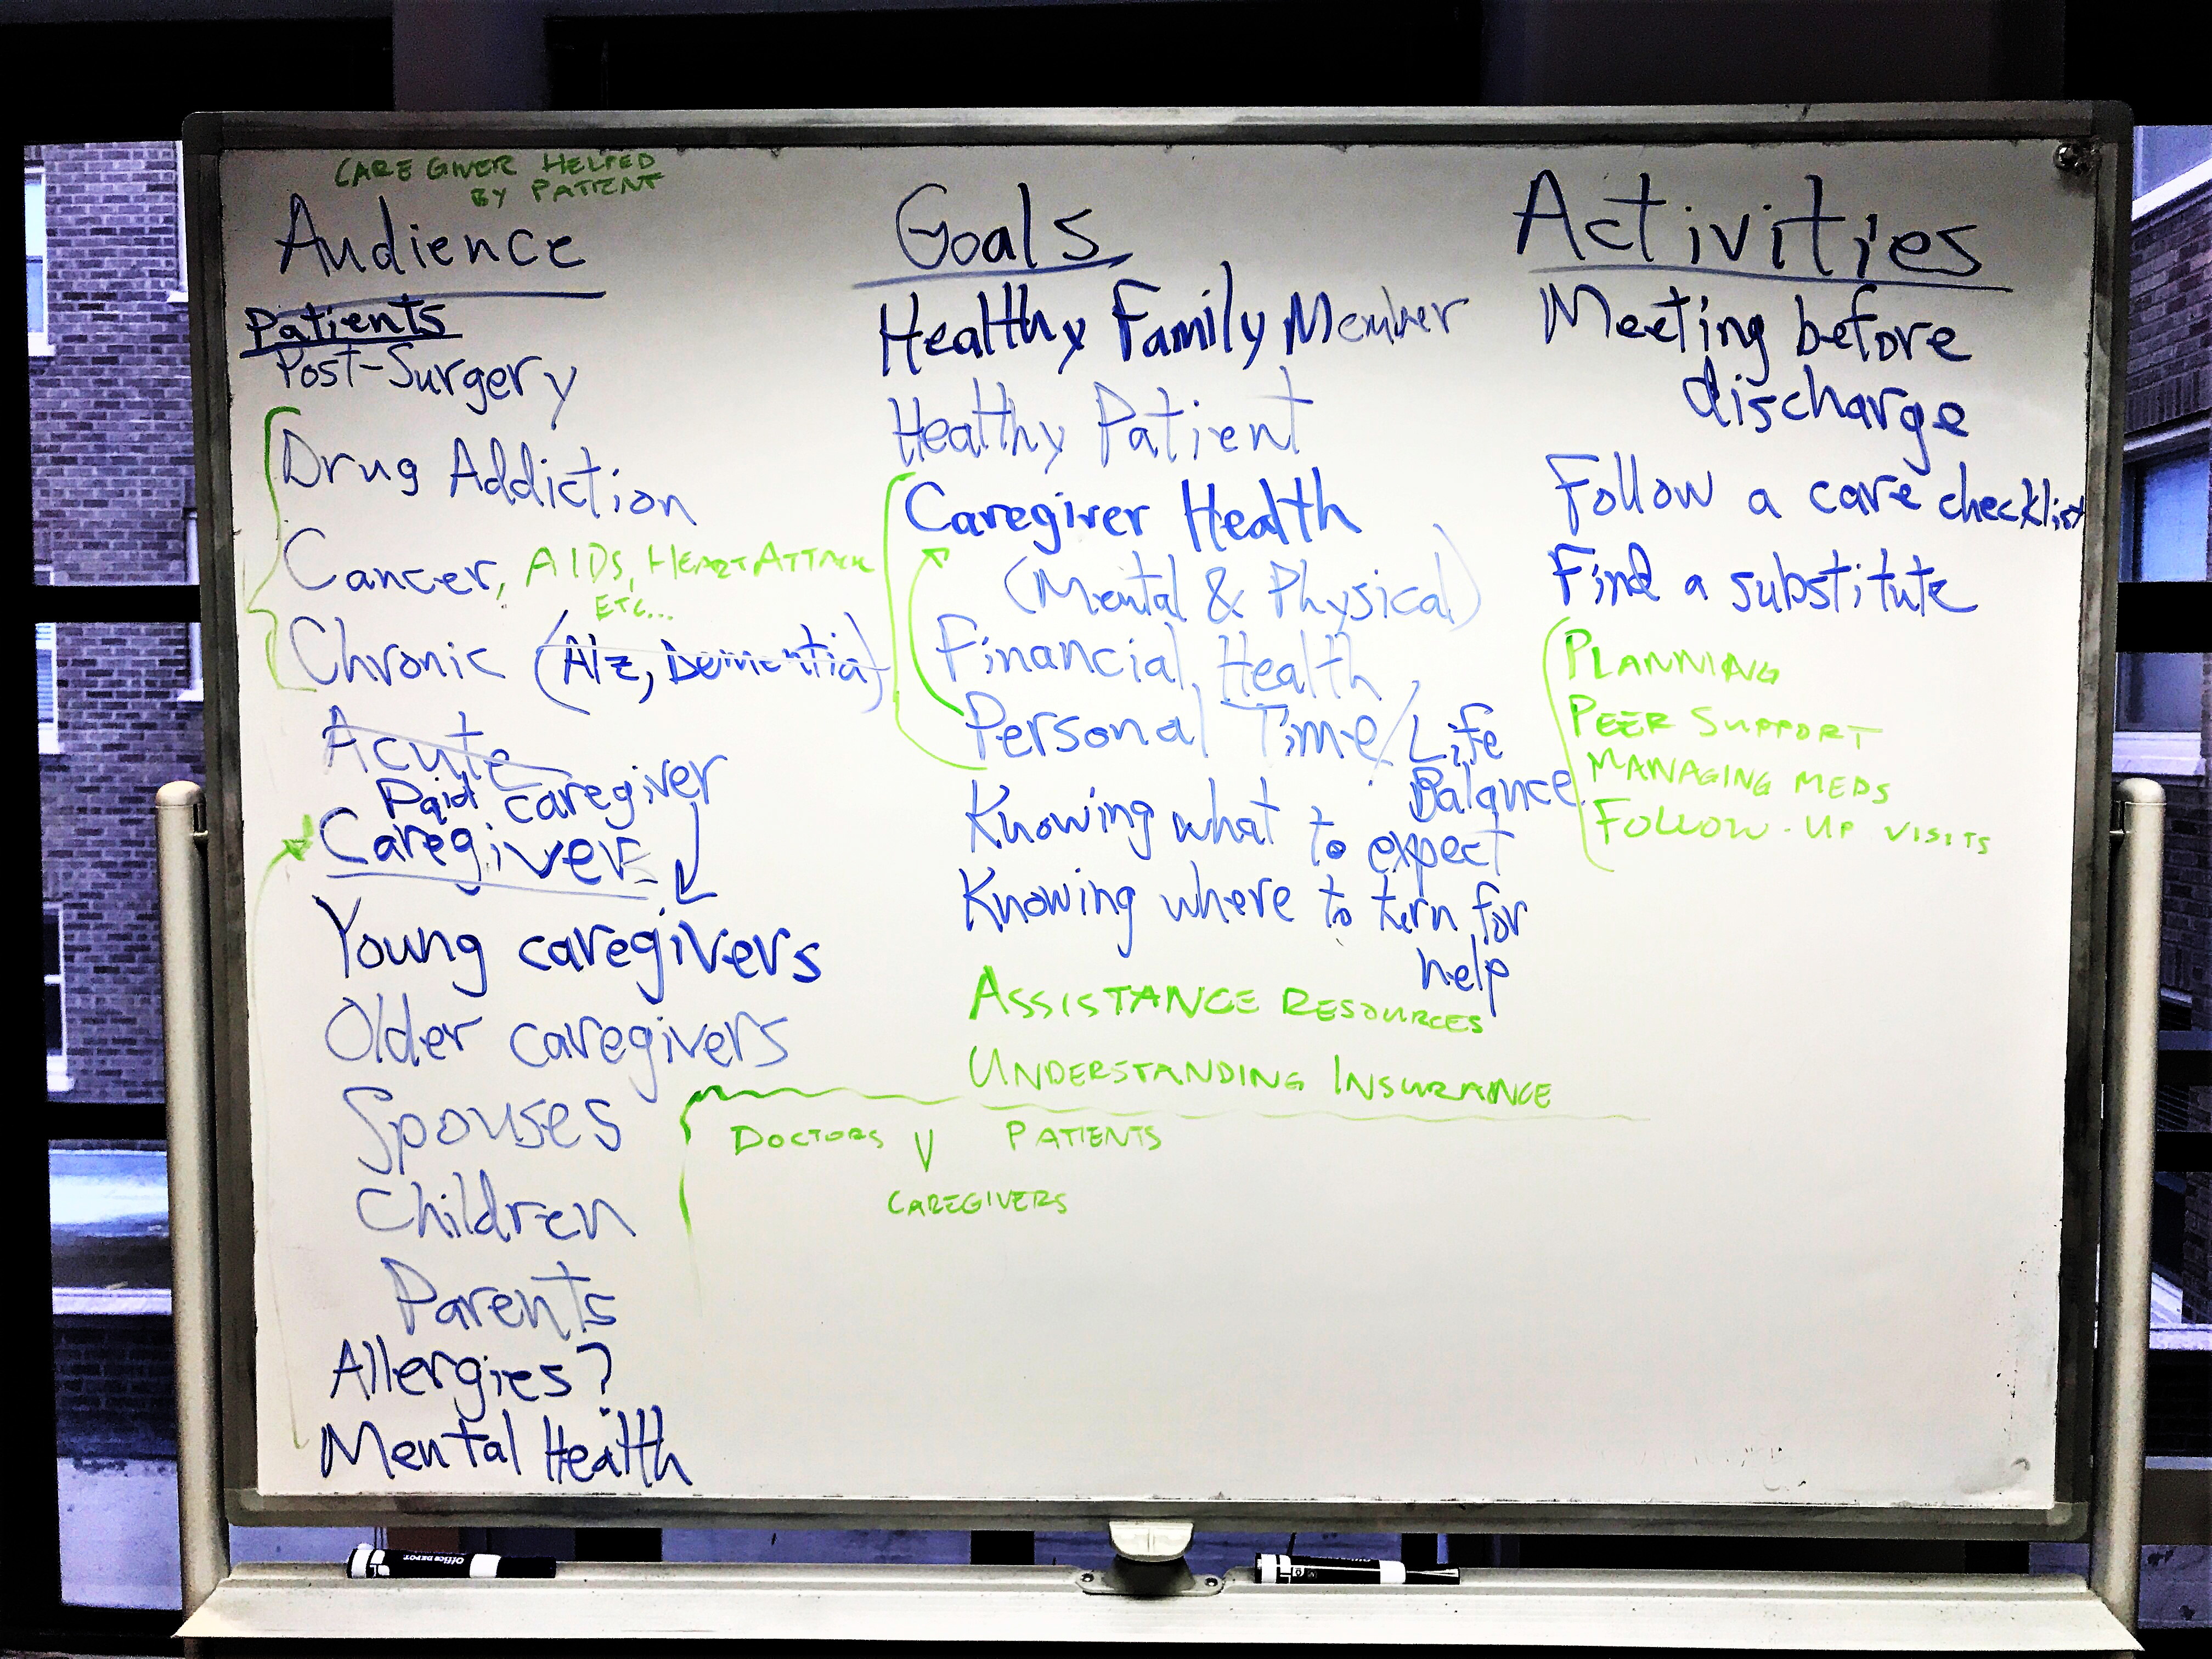 CAREGIVER HELPED
BY PATIENT
Audience
Patients
Post-Surgery
Drug Addiction
Cancer, AIDS, HEART ATTACK
ETC...
Chronic (Alz, Dementia)
Acute
Paid caregiver
Caregiver
Young caregivers
Older caregivers
Spouses
Children
Parents
Allergies?
Mental Health
Goals
Healthy Family Member
Healthy Patient
Caregiver Health
(Mental & Physical)
Financial Health
Personal Time/Life
Balance
Knowing what to expect
Knowing where to turn for
help
ASSISTANCE RESOURCES
UNDERSTANDING INSURANCE
DOCTORS V PATIENTS
CAREGIVERS
Activities
Meeting before
discharge
Follow a care checklist
Find a substitute
PLANNING
PEER SUPPORT
MANAGING MEDS
FOLLOW-UP VISITS
Office DEPOT